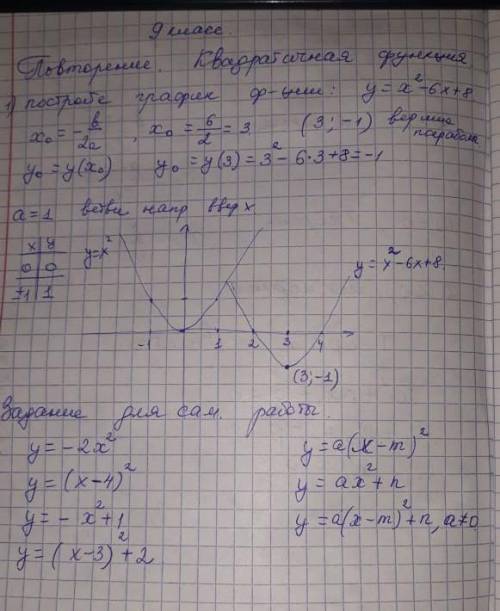 9 класс.
Повторение. Квадратичная функция
1) постройте график ф-ции: y = x² - 6x + 8
x₀ = -b/2a, x₀ = 6/2 = 3 (3; -1) вершина параболы
y₀ = y(x₀) y₀ = y(3) = 3² - 6·3 + 8 = -1
a = 1 ветви напр вверх
x y
0 0
±1 1
y = x²
y = x² - 6x + 8
-1 1 2 3 4
(3; -1)
Задание для сам. работы.
y = -2x² y = a(x - m)²
y = (x - 4)² y = ax² + n
y = -x² + 1 y = a(x - m)² + n, a≠0
y = (x - 3)² + 2